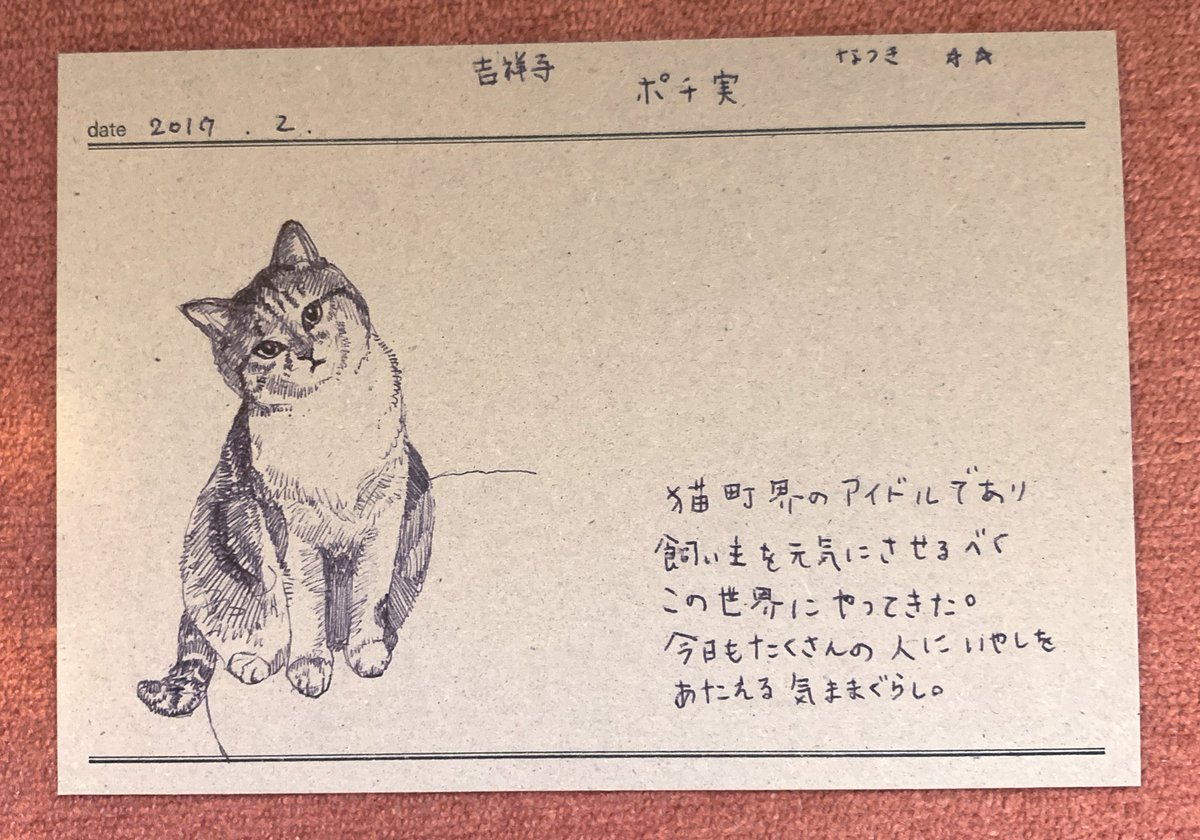 吉祥寺
ポチ実
なつき ☆☆
date 2017.2.
猫町界のアイドルであり
飼い主を元気にさせるべく
この世界にやってきた。
今日もたくさんの人にいやしを
あたえる気ままぐらし。